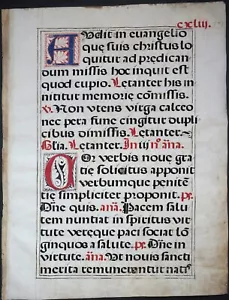 cxliij.
Audit in evangelio
que suis christus lo
quitur ad predican
dum missis hoc inquit est
quod cupio. Letanter his in
nitit memorie commissis.
v. Non utens virga calceo
nec pera fune cingitur dupli
cibus dimissis. Letanter.
Glia. Letanter. In iij nº. aña.
Cor verbis nove gratie
solicitus apponit
verbumque penitē
tie simpliciter proponit. ps.
Dñe quis. aña. Pacem salu
tem nuntiat in spiritus virtu
te vereque pacis sociat lō
ginquos a salute. ps. Dñe in
virtute. aña. Ut novus sancti
merita